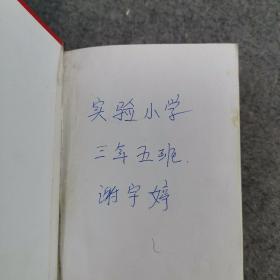 实验小学
三年五班.
谢宇婷